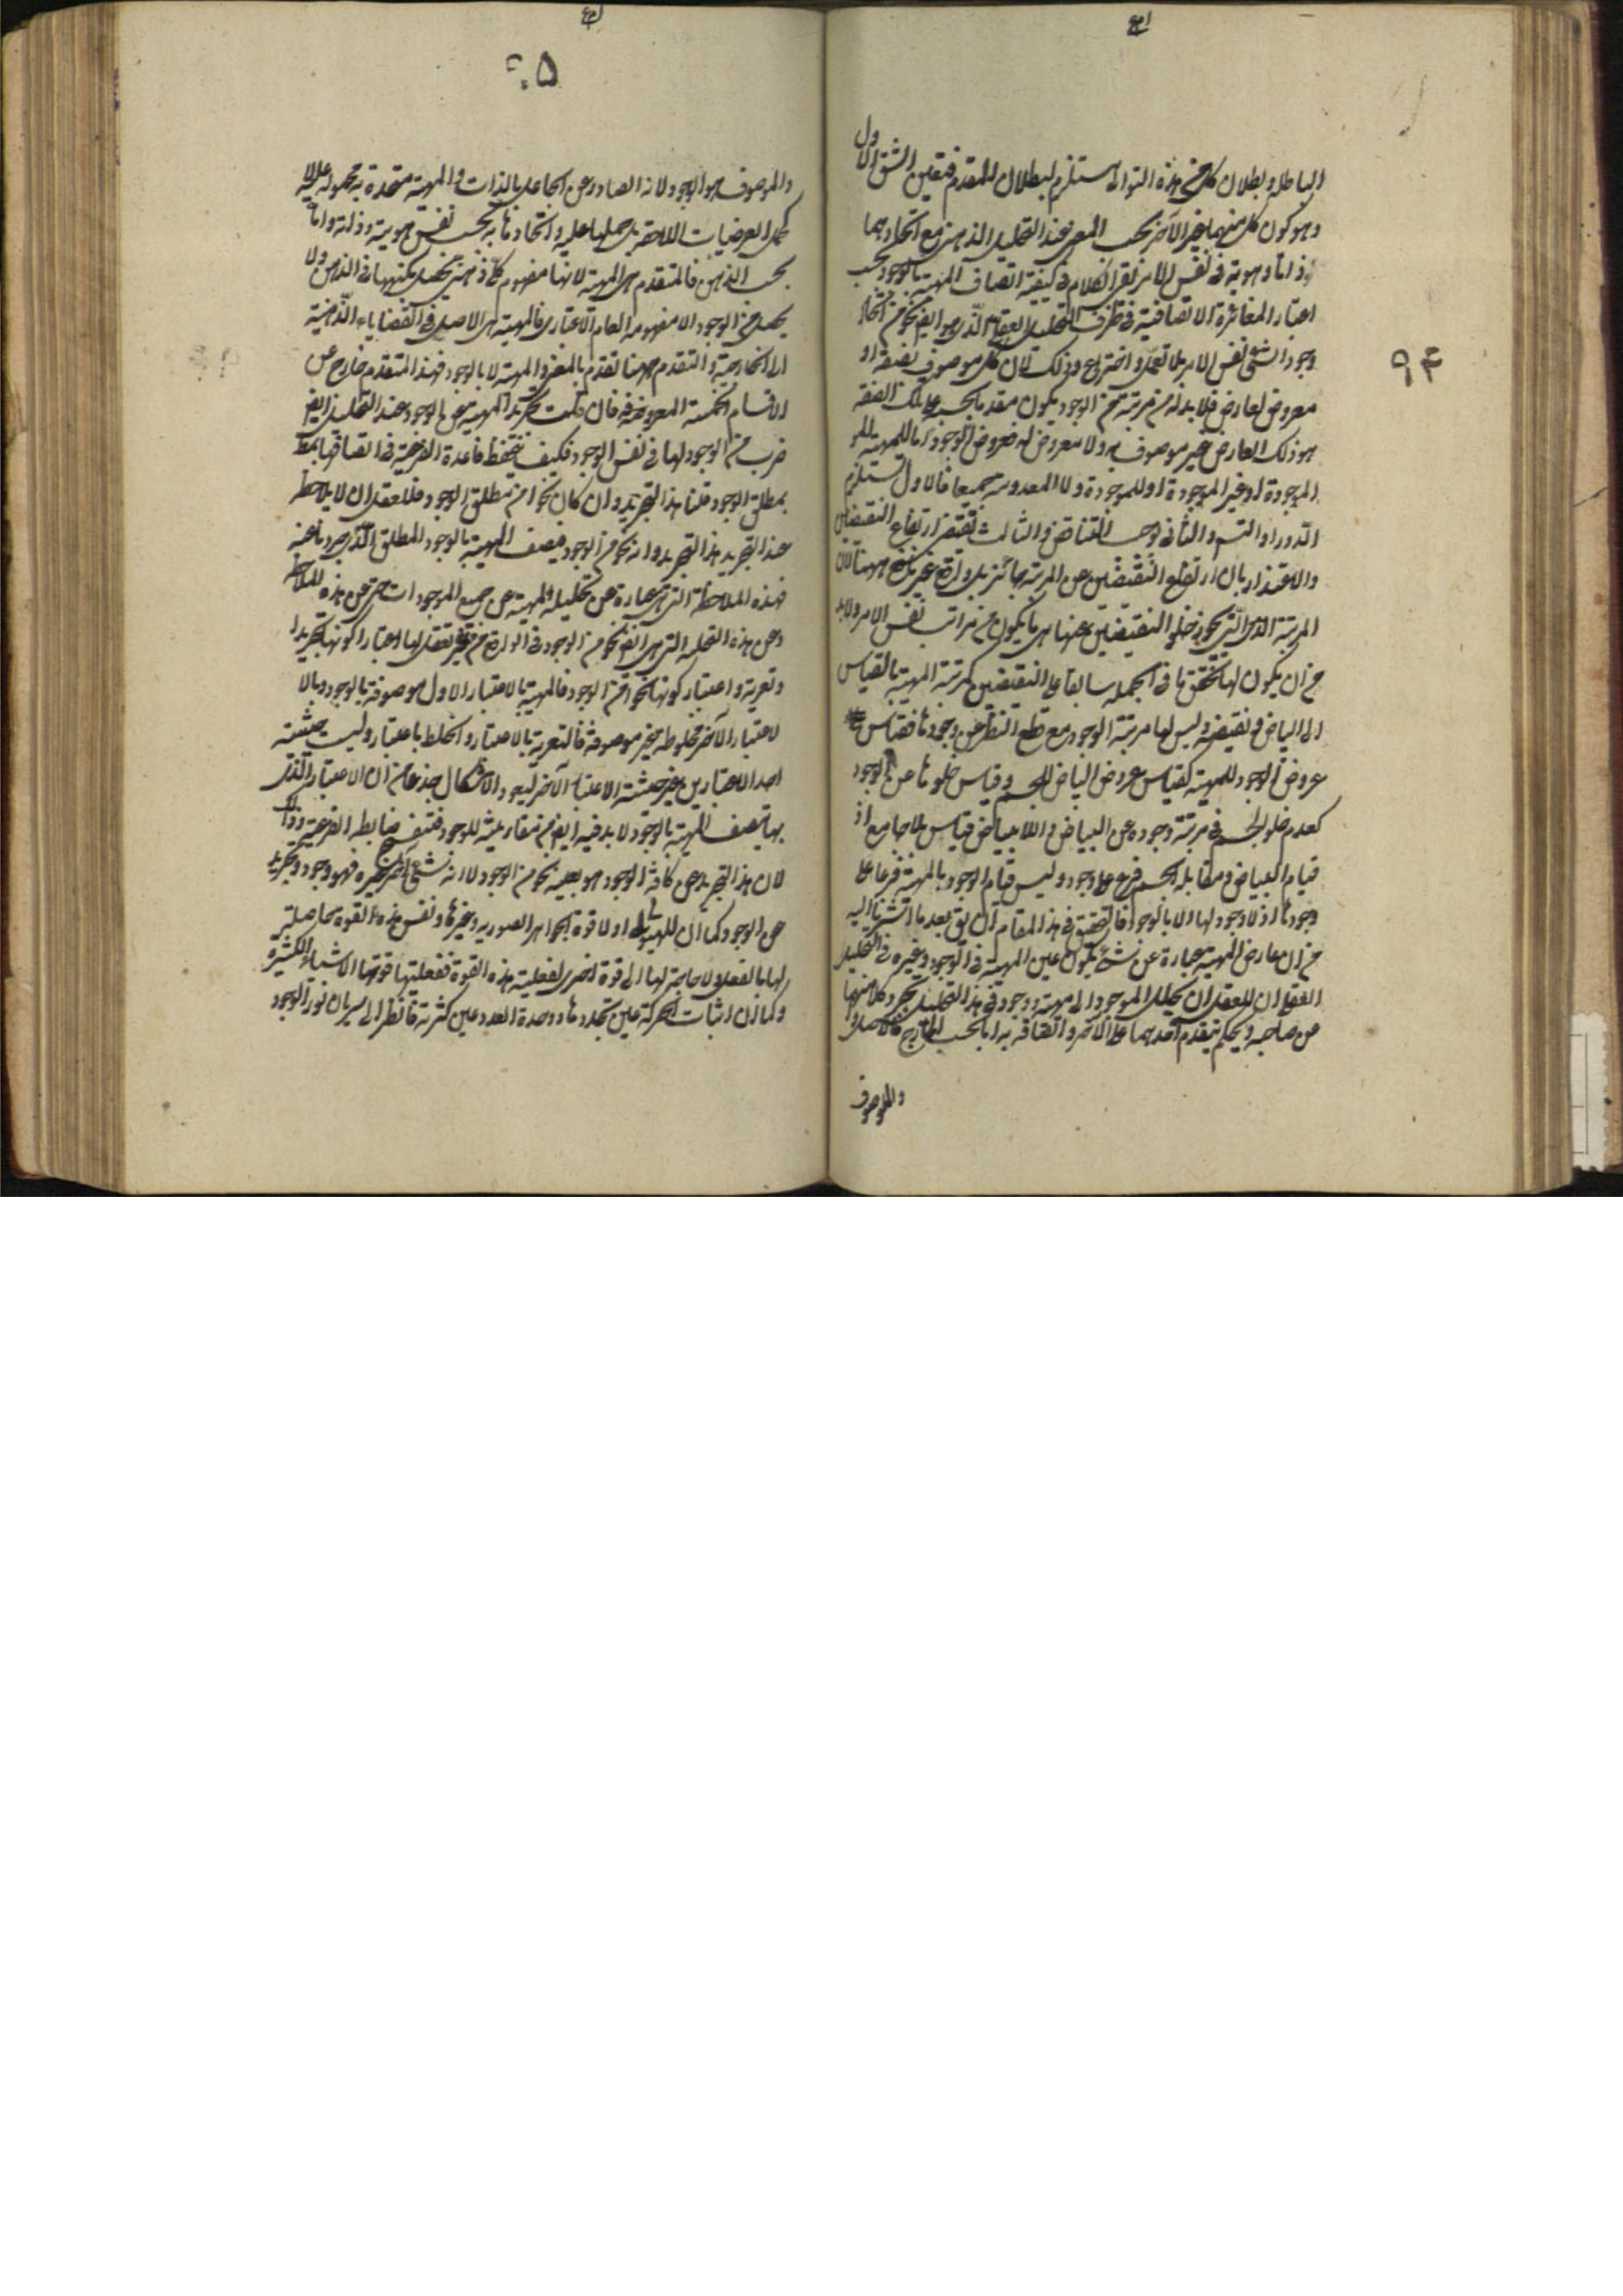 الباطله و بطلان كل من هذه التوالى مستلزم لبطلان المقدم فتعين الشق الاول
و هو كون كل منهما غير الآخر بحسب المعنى عند التحليل الذهنى مع اتحادهما
ذاتا و هوية فى نفس الامر بقى الكلام فى كيفية اتصاف المهية بالوجود بحسب
اعتبار المغائرة الاتصافية فى ظرف التحليل العقلى الذى هو ايضا نحو من انحاء
وجود الشئ فى نفس الامر بلا تعمل و اختراع و ذلك لان كل موصوف بصفة او
معروض لعارض فلا بد له من مرتبة من الوجود يكون متقدما بحسبه على تلك الصفة
هو ذلك العارض غير موصوف به و لا معروض له فعروض الوجود اما للمهية
الموجودة او غير الموجودة او لا الموجودة و لا المعدومة جميعا فالاول يستلزم
الدور او التس و الثانى يوجب التناقض و الثالث يقتضى ارتفاع النقيضين
و الاعتذار بان ارتفاع النقيضين عن المرتبة جائز بل واقع غير نافع ههنا لان
المرتبة التى يجوز خلو النقيضين عنها هى ما يكون من مراتب نفس الامر و لا بد
من ان يكون لها تحقق ما فى الجملة سابقا على النقيضين كمرتبة المهية بالقياس
الى البياض و نقيضه و ليس لها مرتبة الوجود مع قطع النظر عن وجودها فقياس
عروض الوجود للمهية كقياس عروض البياض للجسم و قياس خلوها عن الوجود
كعدم خلو الجسم فى مرتبة وجوده عن البياض و اللابياض قياس بلا جامع اذ
قيام البياض و مقابله بالجسم فرع على وجوده و ليس قيام الوجود بالمهية فرعا على
وجودها اذ لا وجود لها الا بالوجود فالتحقيق فى هذا المقام ان يق بعد ما اشرنا اليه
من ان عارض المهية عبارة عن شئ يكون عين المهية فى الوجود و غيره فى التحليل
العقلى ان للعقل ان يحلل الموجود الى مهية و وجود فى هذا التحليل تجرد كلا منهما
عن صاحبه و يحكم بتقدم احدهما على الآخر و اتصافه به اما بحسب الخارج فالاصل و
و الموصوف
٥٠
و الموصوف هو الوجود لانه الصادر عن الجاعل بالذات و المهية متحدة به محمولة عليه لا
كحمل العرضيات اللاحقة بل حملها عليه و اتحادها به بحسب نفس هويته و ذاته و اما
بحسب الذهن فالمتقدم هى المهية لانها مفهوم كلى ذهنى يحصل بكنهها فى الذهن و لا
يحصل من الوجود الا مفهومه العام الاعتبارى فالمهية هى الاصل فى القضايا الذهنية
لا الخارجية و التقدم ههنا تقدم بالمعنى و المهية لا بالوجود فهذا التقدم خارج عن
الاقسام الخمسة المعروفة فان قلت تجريد المهية عن الوجود عند التحليل ايضا
ضرب من الوجود لها فى نفس الوجود فكيف تنحفظ قاعدة الفرعية فى اتصافها
بمطلق الوجود قلنا هذا التجريد و ان كان نحوا من مطلق الوجود فللعقل ان لا يلاحظ
عند التجريد هذا التجريد و انه نحو من الوجود فيصف المهية بالوجود المطلق الذى جردناها عنه
فهذه الملاحظة التى هى عبارة عن تخلية المهية عن جميع الموجودات حتى عن هذه الملاحظة
و عن هذه التخلية التى هى ايضا نحو من الوجود فى الواقع من غير تعمل لها اعتبارا كونها تجريدا
و تعرية و اعتبار كونها نحوا من الوجود فالمهية بالاعتبار الاول موصوفة بالوجود و بالا
لاعتبار الآخر مخلوطة غير موصوفة فالتعرية بالاعتبار و الخلط باعتبار و ليست حيثية
احد الاعتبارين غير حيثية الاعتبار الآخر ليعود الاشكال جذعا من ان الاعتبار الذى
بها تتصف المهية بالوجود لا بد فيه ايضا من مقارنته للوجود فتنفسخ ضابطة الفرعية و ذلك
لان هذا التجريد عن كافة الوجود هو بعينه نحو من الوجود لا انه شئ آخر غيره فهو وجود و تجريد
عن الوجود كما ان للهيولى الاولى قوة الجواهر الصورية و غيرها و نفس هذه القوة حاصلة
لها بالفعل و لا حاجة لها الى قوة اخرى لفعلية هذه القوة ففعليتها قوتها الاشياء الكثيرة
و كما ان ثبات الحركة عين تجددها و وحدة العدد عين كثرته فانظر الى سريان نور الوجود